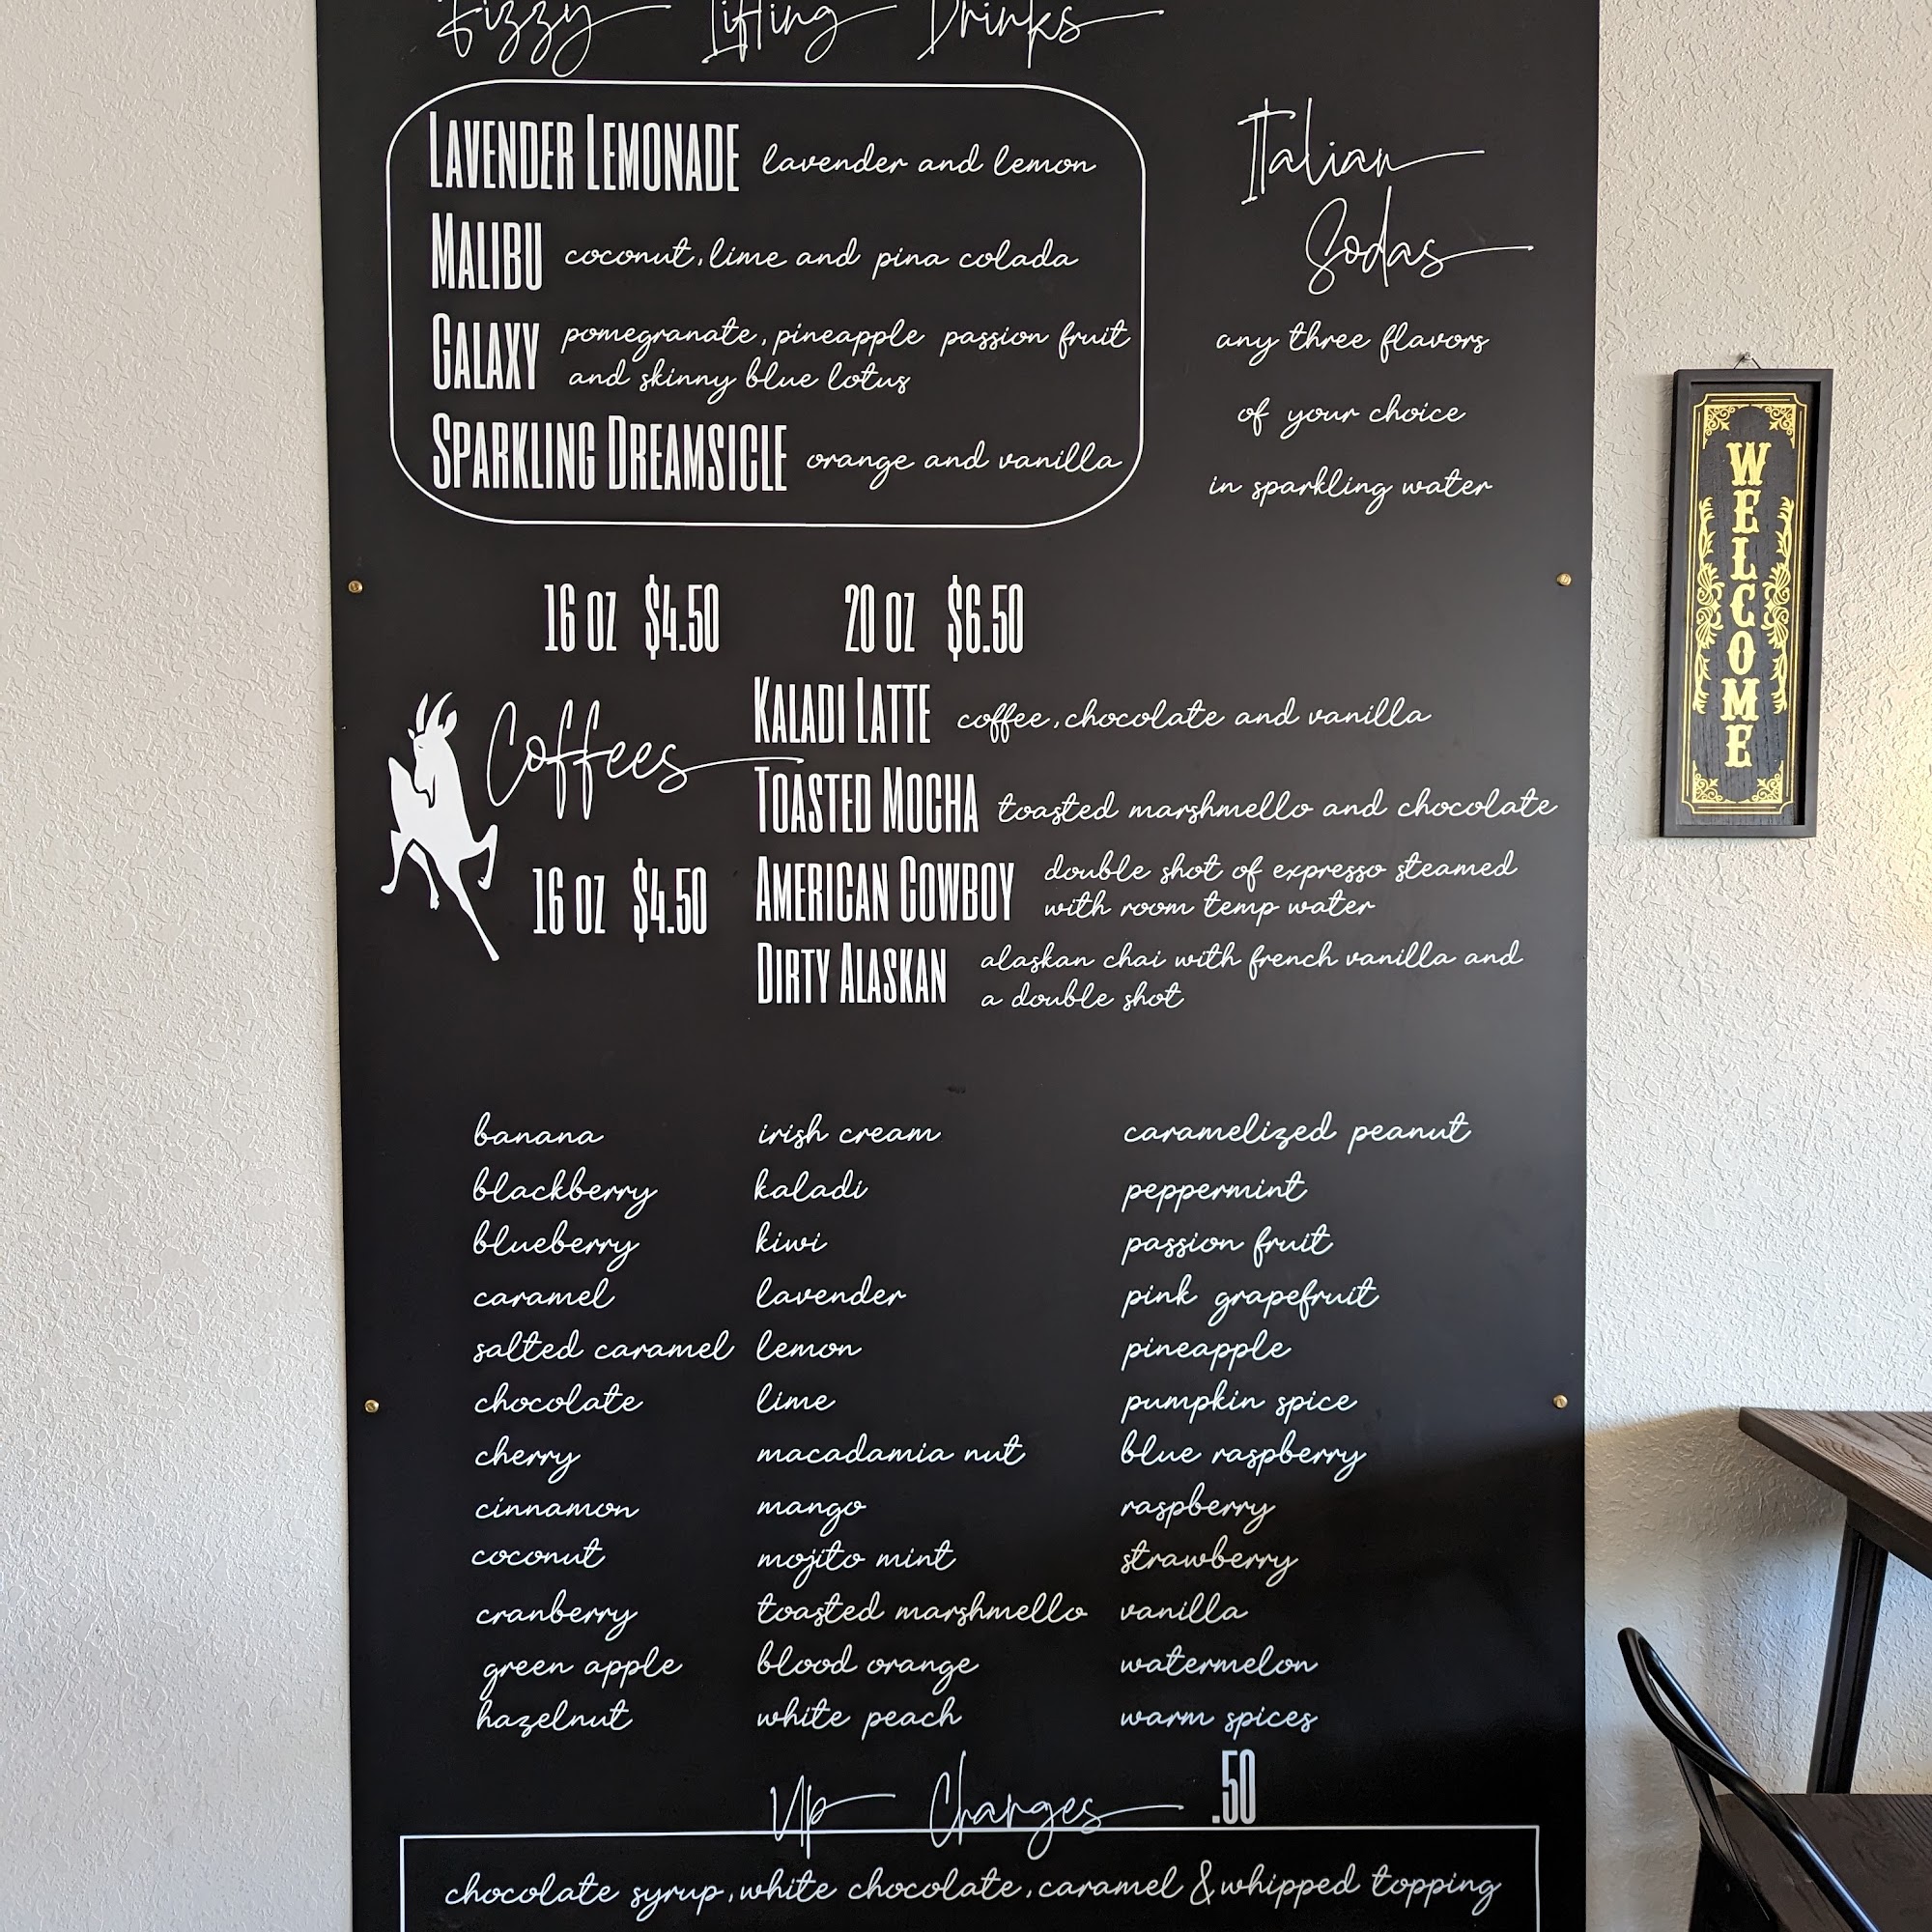 Fizzy Lifting Drinks
LAVENDER LEMONADE lavender and lemon
MALIBU coconut, lime and pina colada
GALAXY pomegranate, pineapple passion fruit
and skinny blue lotus
SPARKLING DREAMSICLE orange and vanilla
Italian
Sodas
any three flavors
of your choice
in sparkling water
16 oz $4.50 20 oz $6.50
Coffees
16 oz $4.50
KALADI LATTE coffee, chocolate and vanilla
TOASTED MOCHA toasted marshmello and chocolate
AMERICAN COWBOY double shot of expresso steamed
with room temp water
DIRTY ALASKAN alaskan chai with french vanilla and
a double shot
banana
blackberry
blueberry
caramel
salted caramel
chocolate
cherry
cinnamon
coconut
cranberry
green apple
hazelnut
irish cream
kaladi
kiwi
lavender
lemon
lime
macadamia nut
mango
mojito mint
toasted marshmello
blood orange
white peach
caramelized peanut
peppermint
passion fruit
pink grapefruit
pineapple
pumpkin spice
blue raspberry
raspberry
strawberry
vanilla
watermelon
warm spices
Up Charges .50
chocolate syrup, white chocolate, caramel & whipped topping
WELCOME